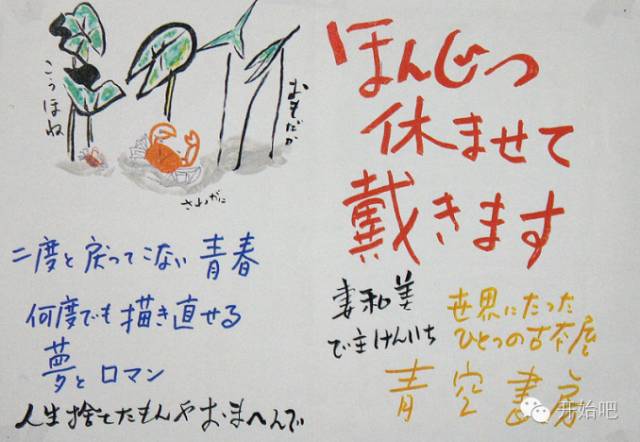 こうほね
おもだか
さわがに
二度と戻ってこない青春
何度でも描き直せる
夢とロマン
人生捨てたもんやおまへんで
ほんじつ
休ませて
戴きます
妻和美
で主けんいち
世界にたった
ひとつの古本屋
青空書房
开始吧